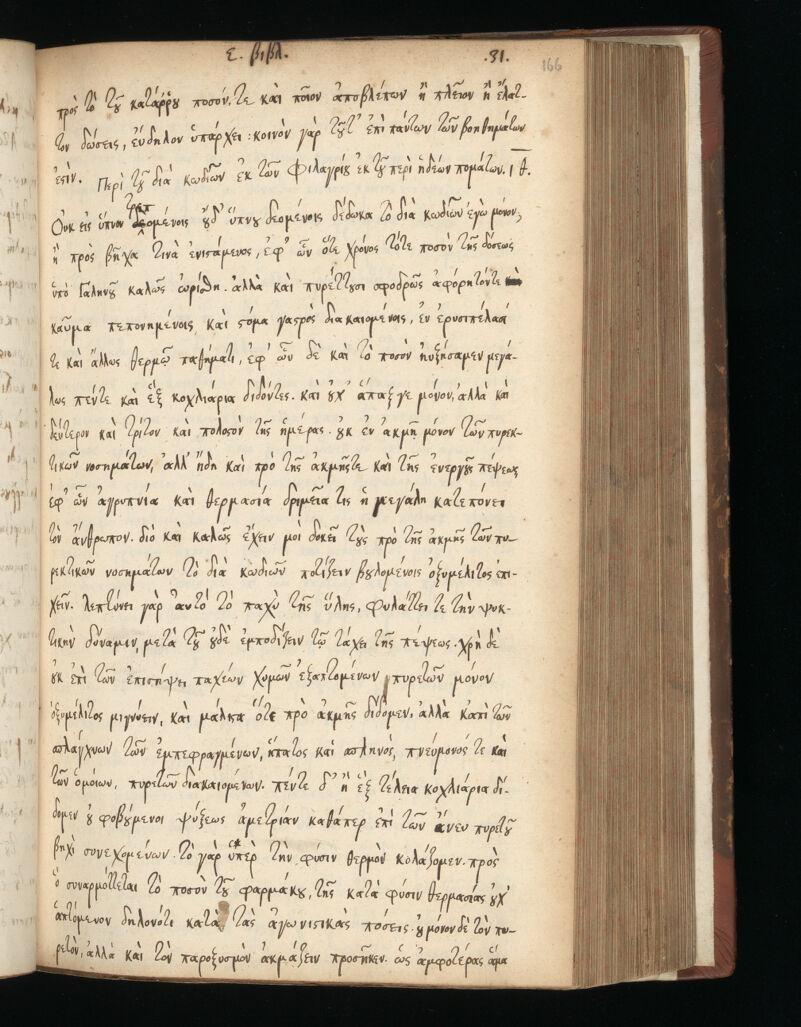 ε. βιβλ. .31. 166
πρὸς τὸ τοῦ κατάρρου ποσόν, τε καὶ ποῖον ἀποβλέπων ἢ πλεῖον ἢ ἔλατ-
τον δώσεις, εὔδηλον ὑπάρχει : κοινὸν γὰρ τοῦτ' ἐπὶ πάντων τῶν βοηθημάτων
ἐστίν. Περὶ τοῦ διὰ κωδιῶν ἐκ τῶν Φιλαγρίου ἐκ τοῦ περὶ ἡδέων πομάτων. ιθ.
τρεπ
Οὐκ εἰς ὕπνον δεομένοις οὐδ' ὕπνου δεομένοις δέδωκα τὸ διὰ κωδιῶν ἐγὼ μόνον,
ἢ πρὸς βῆχα τινὰ ἐνιστάμενος, ἐφ' ὧν ὅτε χρόνος τότε ποσὸν τῆς δόσεως
ὑπὸ Γαληνοῦ καλῶς ὡρίσθη. ἀλλὰ καὶ πυρέττουσι σφοδρῶς ἀφόρητόν τε
καῦμα πεπονημένοις, καὶ στόμα γαστρὸς διακαιομένοις, ἐν ἐρυσιπέλασί
τε καὶ ἄλλως θερμῷ παθήματι, ἐφ' ὧν δὲ καὶ τὸ ποσὸν ηὐξήσαμεν μεγά-
λως πέντε καὶ ἓξ κοχλιάρια διδόντες. καὶ οὐχ' ἅπαξ γε μόνον, ἀλλὰ καὶ
δεύτερον καὶ τρίτον καὶ πολοστὸν τῆς ἡμέρας. οὐκ ἐν ἀκμῇ μόνον τῶν πυρεκ-
τικῶν νοσημάτων, ἀλλ' ἤδη καὶ πρὸ τῆς ἀκμῆς τε καὶ τῆς ἐνεργοῦς πέψεως
ἐφ' ὧν ἀγρυπνία καὶ θερμασία δριμεῖά τις ἢ μεγάλη κατεπόνει
τὸν ἄνθρωπον. διὸ καὶ καλῶς ἔχειν μοι δοκεῖ τοὺς πρὸ τῆς ἀκμῆς τῶν πυ-
ρεκτικῶν νοσημάτων τὸ διὰ κωδιῶν ποτίζειν βουλομένοις ὀξυμέλιτος ἐπι-
χεῖν. λεπτύνει γὰρ αὐτὸ τὸ παχὺ τῆς ὕλης, φυλάττει τε τὴν ψυκ-
τικὴν δύναμιν, μετὰ τοῦ οὐδὲ ἐμποδίζειν τῷ τάχει τῆς πέψεως. χρὴ δὲ
οὐκ ἐπὶ τῶν ἐπὶ σήψει παχέων χυμῶν ἐξαπτομένων πυρετῶν μόνον
ὀξυμέλιτος μιγνύειν, καὶ μάλιστα ὅτε πρὸ ἀκμῆς δίδομεν, ἀλλὰ κἀπὶ τῶν
σπλάγχνων τῶν ἐμπεφραγμένων, ἥπατος καὶ σπληνὸς, πνεύμονός τε καὶ
τῶν ὁμοίων, πυρετῶν διακαιομένων. πέντε δ' ἢ ἓξ τέλεια κοχλιάρια δί-
δομεν οὐ φοβούμενοι ψύξεως ἀμετρίαν καθάπερ ἐπὶ τῶν ἄνευ πυρετοῦ
βηχὶ συνεχομένων. τὸ γὰρ ὑπὲρ τὴν φύσιν θερμὸν κολάζομεν. πρὸς
ὃ συναρμόττεται τὸ ποσὸν τοῦ φαρμάκου, τῆς κατὰ φύσιν θερμασίας οὐχ'
ἁπτόμενον δηλονότι κατὰ τὰς ἀγωνιστικὰς πόσεις. οὐ μόνον δὲ τὸν πυ-
ρετὸν, ἀλλὰ καὶ τὸν παροξυσμὸν ἀκμάζειν προσῆκεν. ὡς ἀμφοτέρας ἅμα